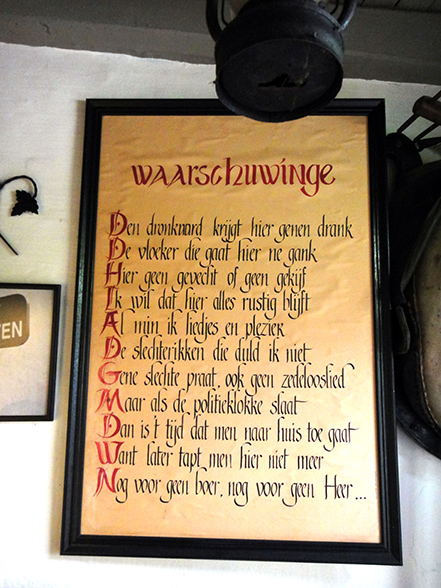 waarschuwinge
Den dronknard krijgt hier genen drank
De vloeker die gaat hier ne gank
Hier geen gevecht of geen gekijf
Ik wil dat hier alles rustig blijft
Al min ik liedjes en plezier
De slechterikken die duld ik niet
Gene slechte praat, ook geen zedelooslied
Maar als de politieklokke slaat
Dan is't tijd dat men naar huis toe gaat
Want later tapt men hier niet meer
Nog voor geen boer, nog voor geen Heer...
TEN